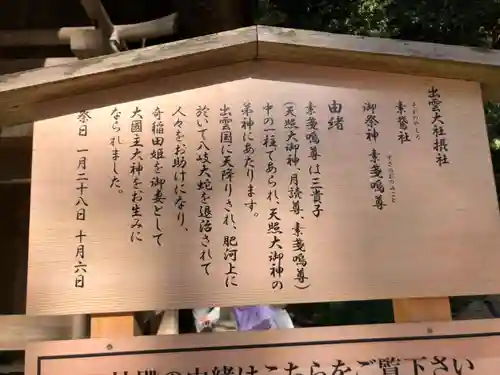 出雲大社摂社
素鵞社
そがのやしろ
御祭神 素戔嗚尊
すさのおのみこと
由緒
素戔嗚尊は三貴子
(天照大御神、月読尊、素戔嗚尊)
中の一柱であられ、天照大御神の
弟神にあたります。
出雲国に天降りされ、肥河上に
於いて八岐大蛇を退治されて
人々をお助けになり、
奇稲田姫を御妻として
大国主大神をお生みに
なられました。
祭日 一月二十八日 十月六日
の由緒はこちらをご覧下さい